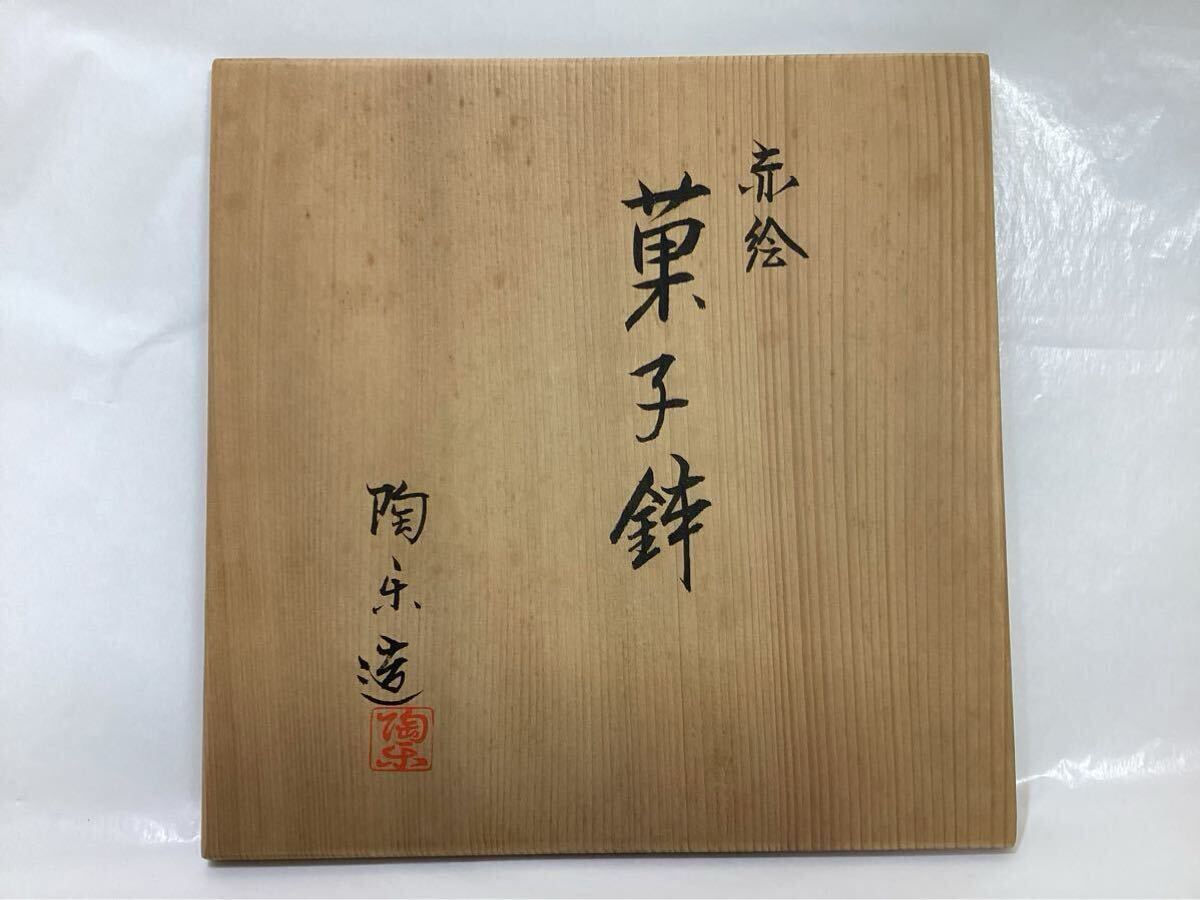 赤絵
菓子鉢
陶楽造
陶楽